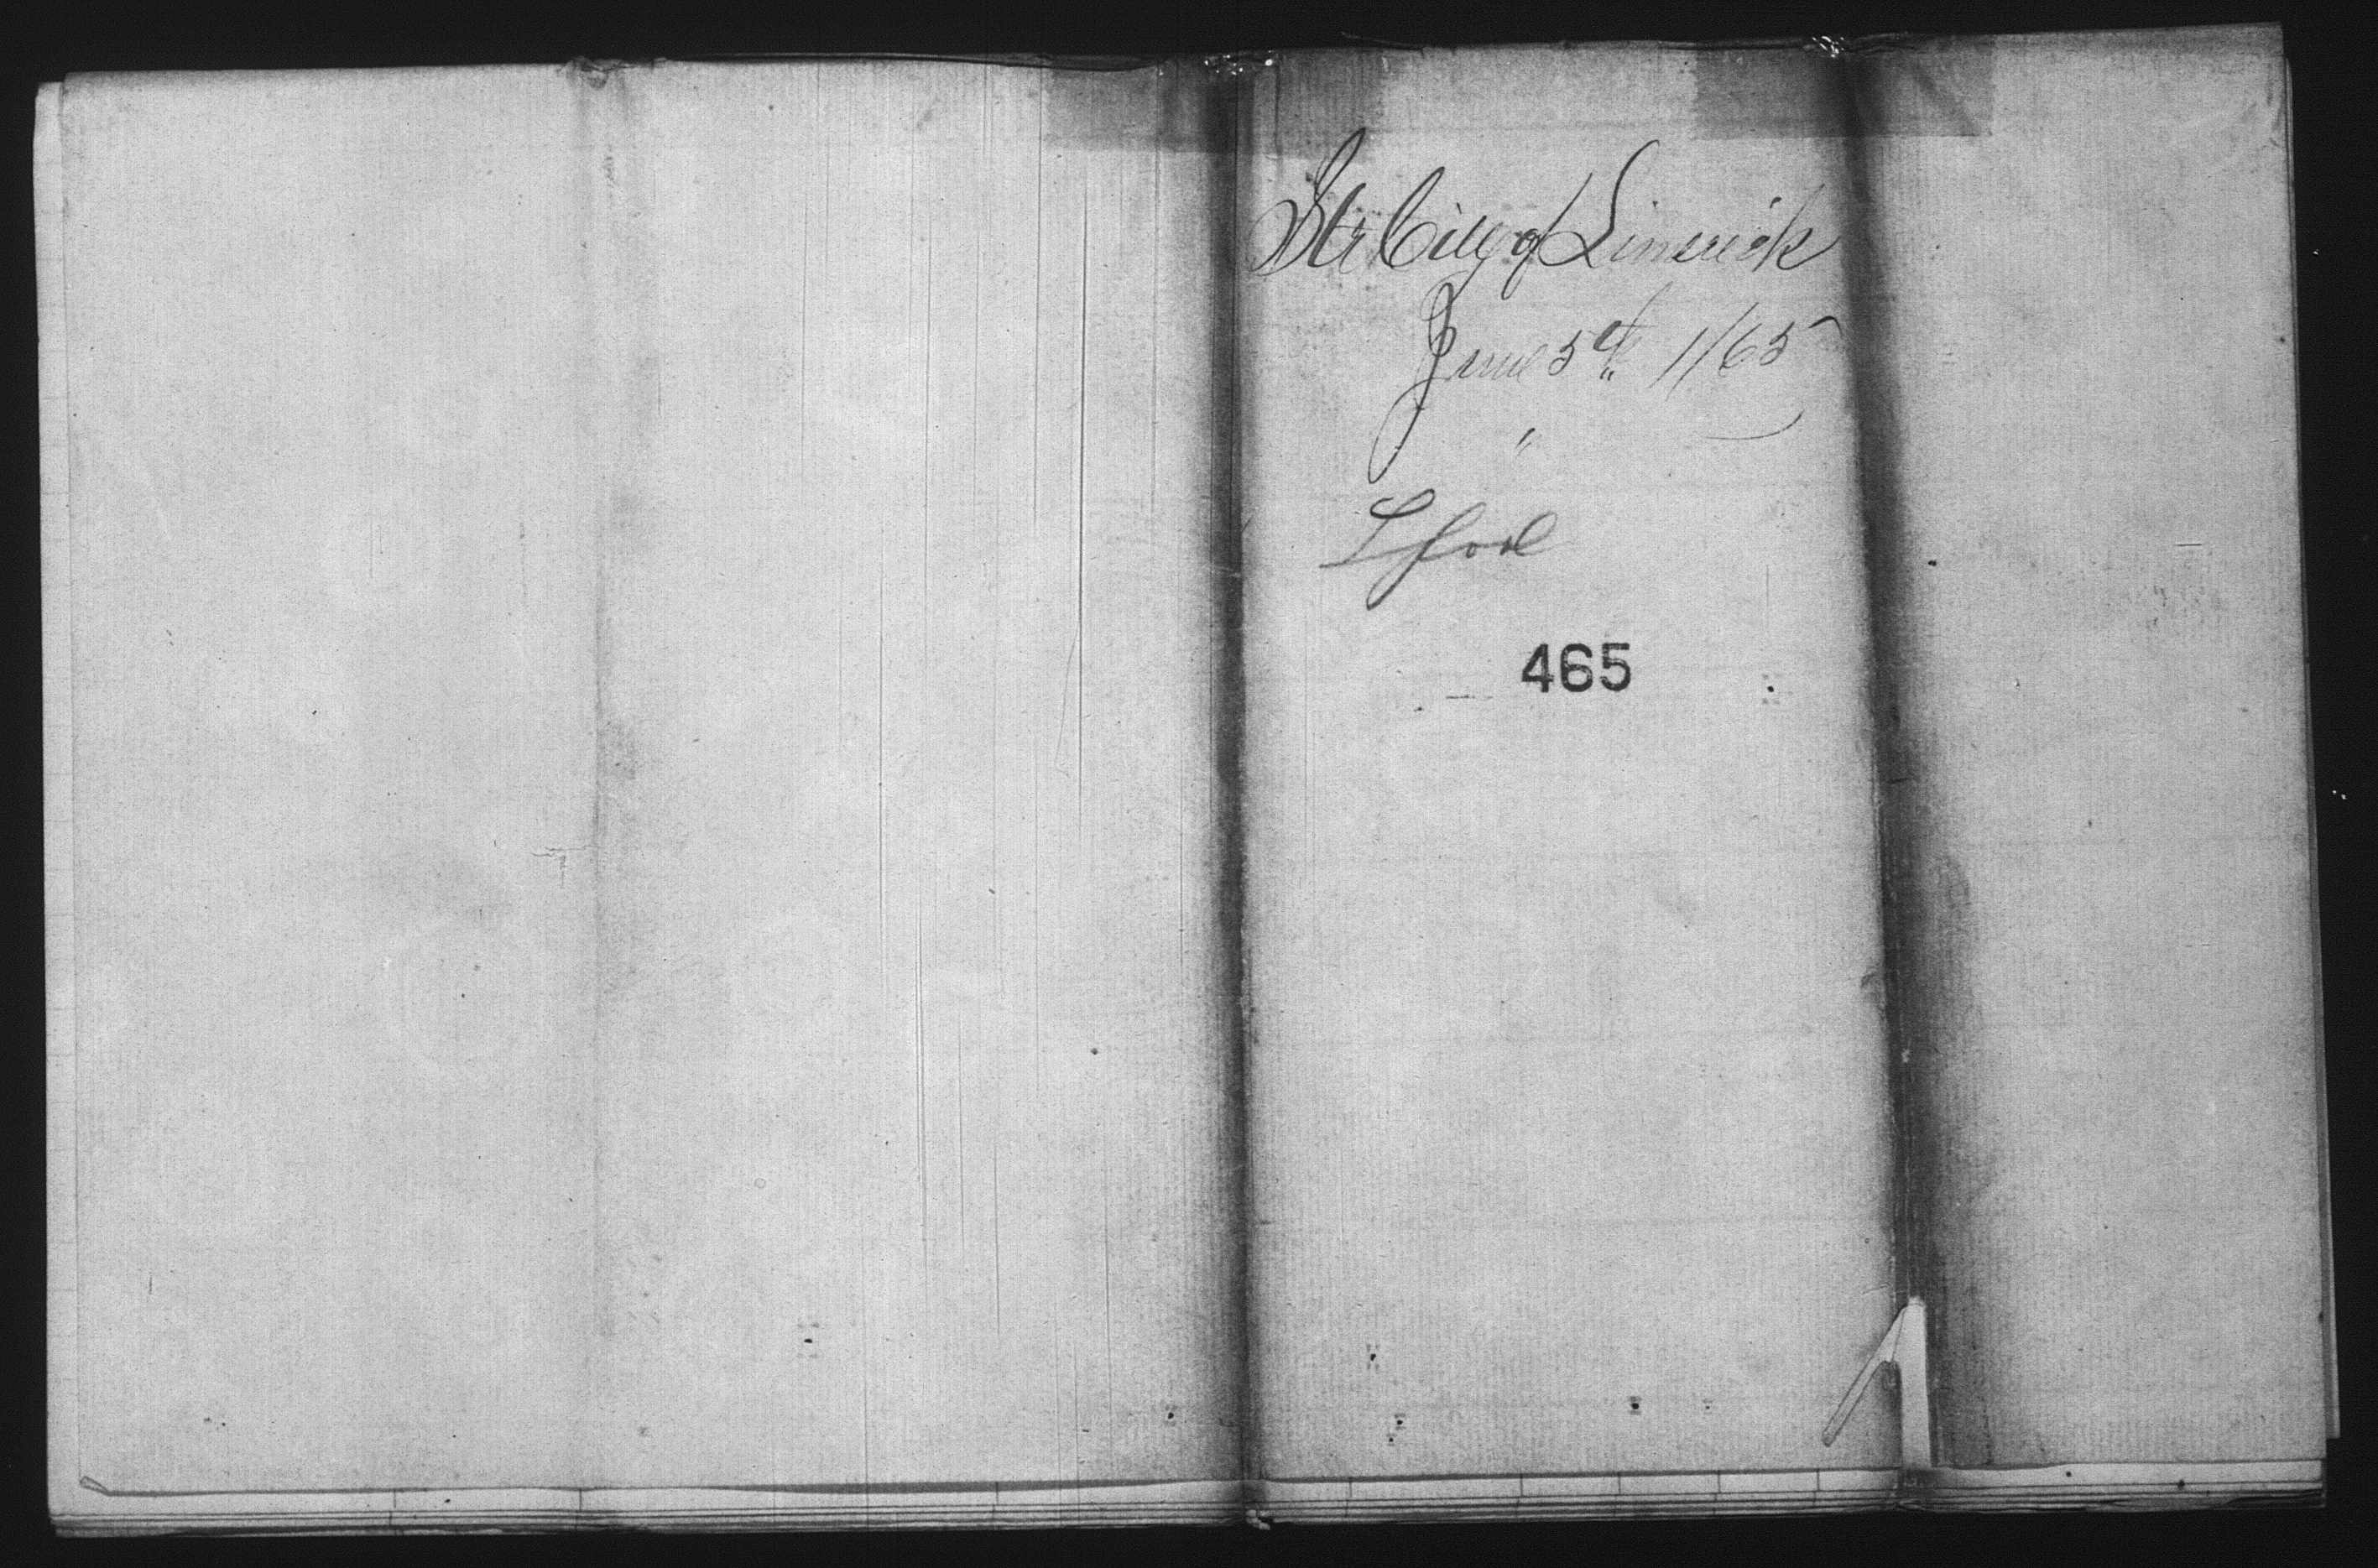 Str City of Limerick
June 5th 1/65
"
465